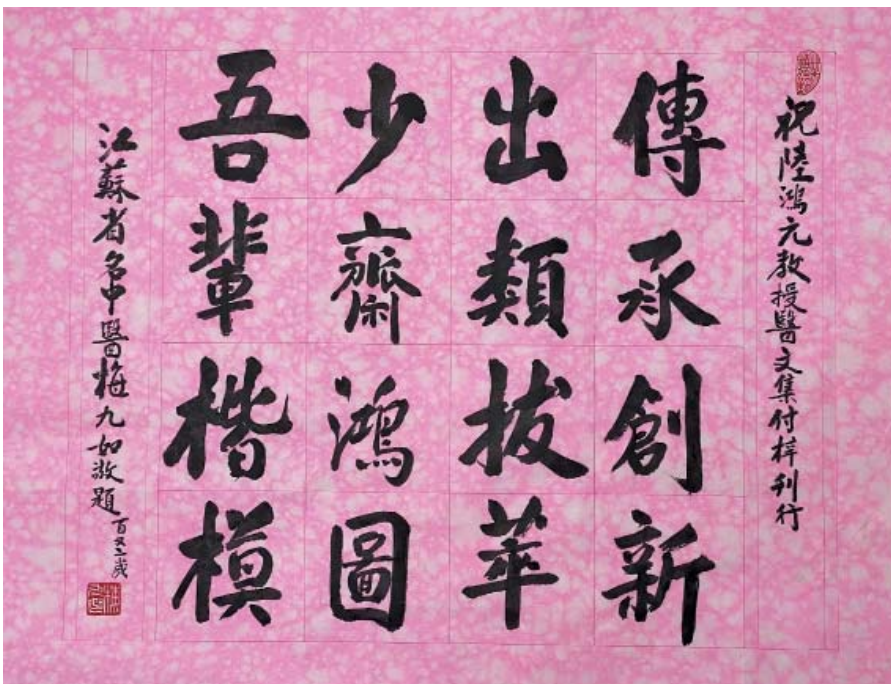 祝陸鴻元教授醫文集付梓刊行
傳承創新
出類拔萃
少齋鴻圖
吾輩楷模
江蘇省名中醫梅九如敬題
百又二歲